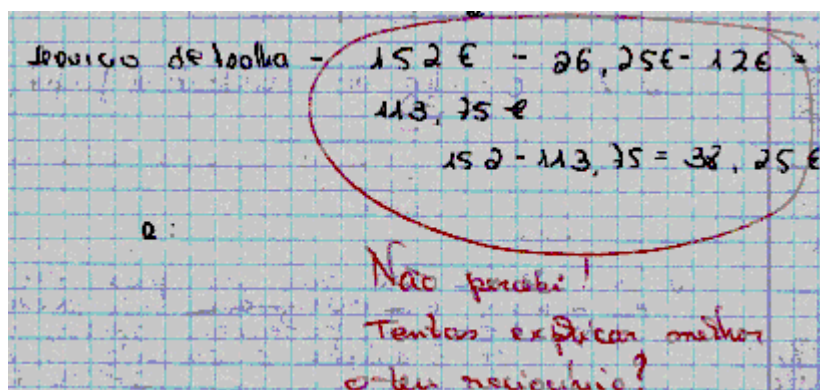 serviço de loolha - 152 € - 26,25€ - 12€ =
113,75 €
152 - 113,75 = 38,25 €
R:
Não percebi!
Tentas explicar melhor
o teu raciocínio?